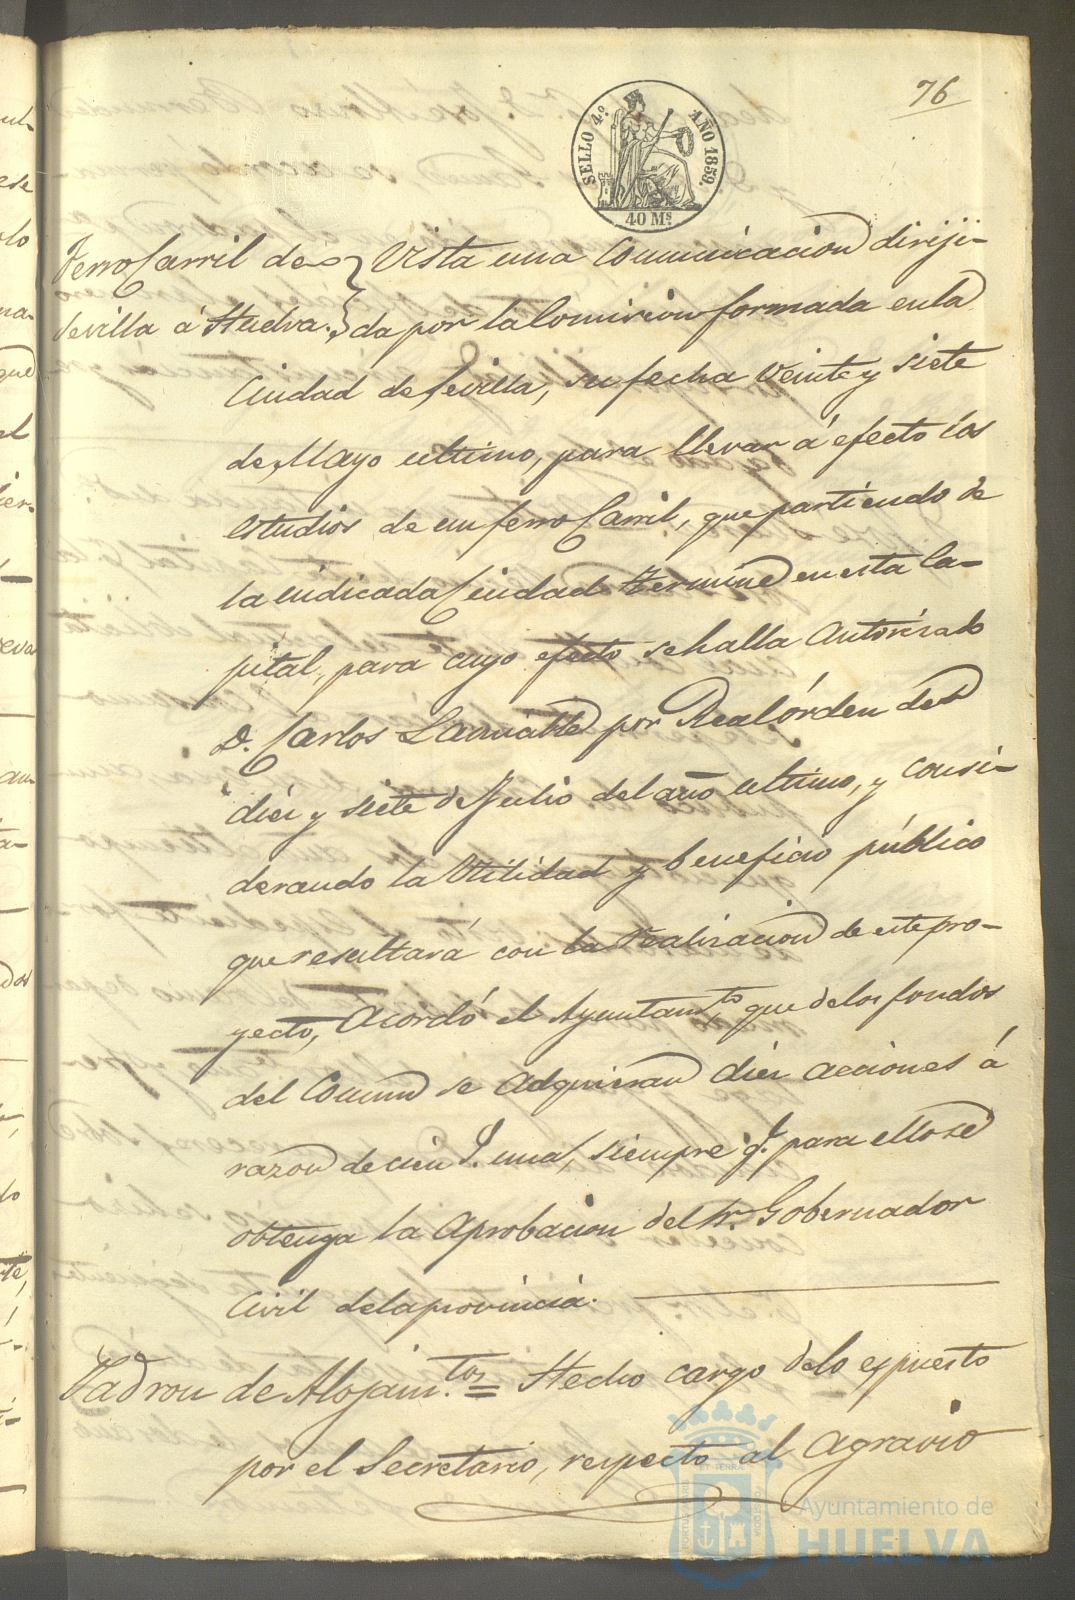 76
SELLO 4º AÑO 1859.
40 Ms
Ferro Carril de } Vista una Comunicacion diriji-
Sevilla á Huelva. } da por la Comision formada en la
Ciudad de Sevilla, su fecha Veinte y siete
de Mayo ultimo, para llevar á efecto los
estudios de un ferro Carril, que partiendo de
la indicada Ciudad termine en esta Ca-
pital, para cuyo efecto se halla Autorizado
D. Carlos Lamiable por Real órden de
diez y siete de Julio del año ultimo, y consi-
derando la Utilidad y beneficio público
que resultará con la realizacion de este pro-
yecto, Acordó el Ayuntamto, que de los fondos
del Comun se Adquieran diez acciones á
razon de cien una, siempre q. para ello se
obtenga la Aprobacion del Sr. Gobernador
Civil de la provincia.
Padron de Alojam.tos = Hecho cargo de lo expuesto
por el Secretario, respecto al Agravio
Ayuntamiento de
HUELVA